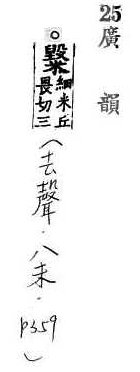 25 廣韻
。毇細米丘
畏切三
(去聲．八未．p359)